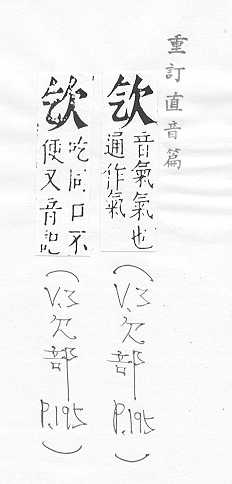 重訂直音篇
音氣氣也
通作氣
(V.3欠部 P.195)
吃同口不
便又音記
(V.3欠部 P.195)